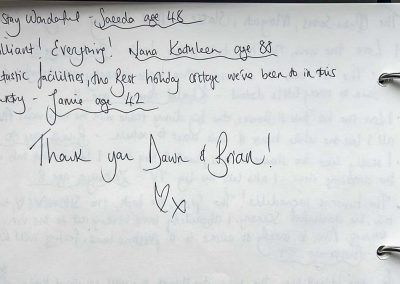 stay Wonderful - Saeeda age 48
lliant! Everything! Nana Kathleen age 88
tastic facilities, the Best holiday cottage we've been to in this
ntry - Jamie age 42
Thank you Dawn & Brian!
x